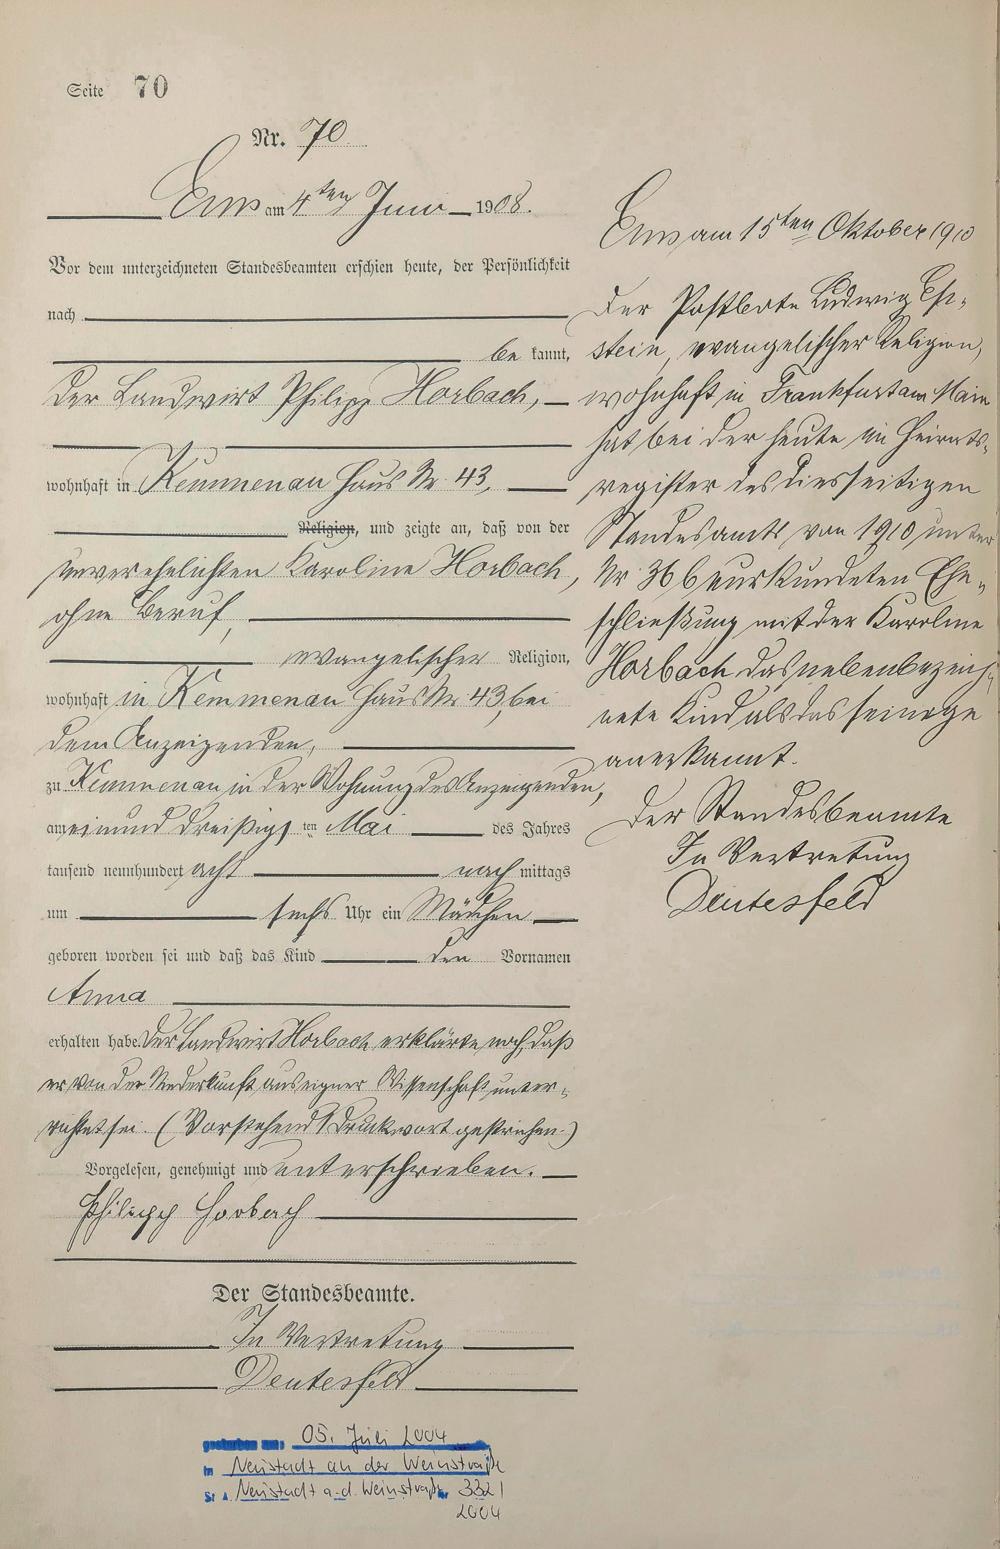 Seite 70
Nr. 70.
Ems am 4ten Juni 1908.
Vor dem unterzeichneten Standesbeamten erschien heute, der Persönlichkeit
nach
be kannt,
der Landwirt Philipp Horbach,
wohnhaft in Kemmenau Haus Nr. 43,
Religion, und zeigte an, daß von der
unverehelichten Karoline Horbach,
ohne Beruf,
evangelischer Religion,
wohnhaft in Kemmenau Haus Nr 43, bei
dem Anzeigenden,
zu Kemmenau in der Wohnung des Anzeigenden,
am einund dreißigs ten Mai des Jahres
tausend neunhundert acht nach mittags
um sechs Uhr ein Mädchen
geboren worden sei und daß das Kind den Vornamen
Anna
erhalten habe. Der Landwirt Horbach erklärte noch, daß
er von der Niederkunft aus eigner Wissenschaft unter-
richtet sei. (Vorstehend 1 Druckwort gestrichen.)
Vorgelesen, genehmigt und unterschrieben.
Philipp Horbach
Der Standesbeamte.
In Vertretung
Deutesfeld
gestorben am: 05. Juli 2004
in Neustadt an der Weinstraße
St. A. Neustadt a.d. Weinstraße Nr. 332/
2004
Ems am 15ten Oktober 1910
Der Postbote Ludwig Ep-
stein, evangelischer Religion,
wohnhaft in Frankfurt am Main
hat bei der heute im Heirats-
register des diesseitigen
Standesamts von 1910 unter
Nr 36 beurkundeten Ehe-
schließung mit der Karoline
Horbach das nebenbezeich-
nete Kind als das seinige
anerkannt.
Der Standesbeamte
In Vertretung
Deutesfeld